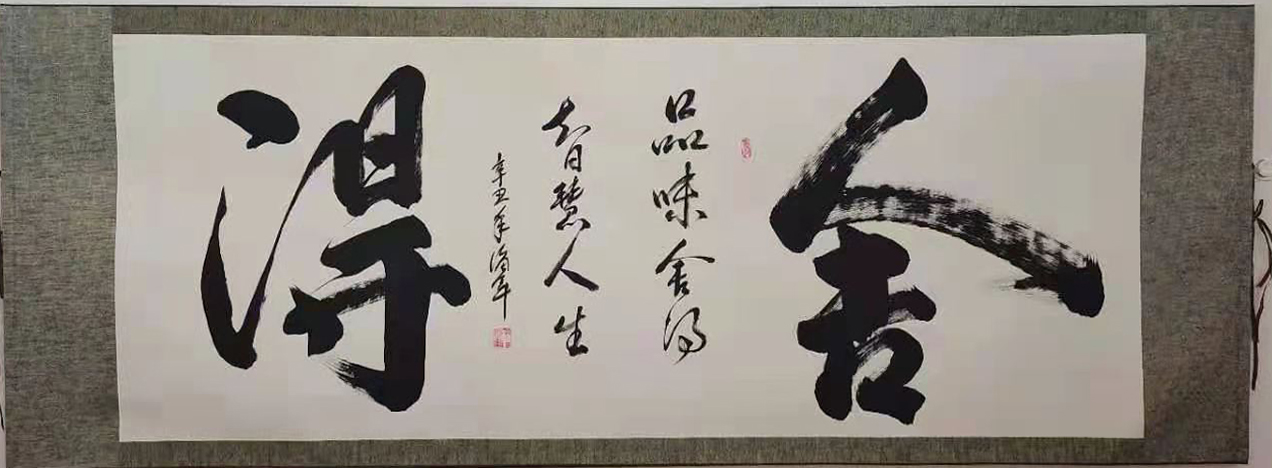 舍
品味舍得
智慧人生
辛丑年海军
得